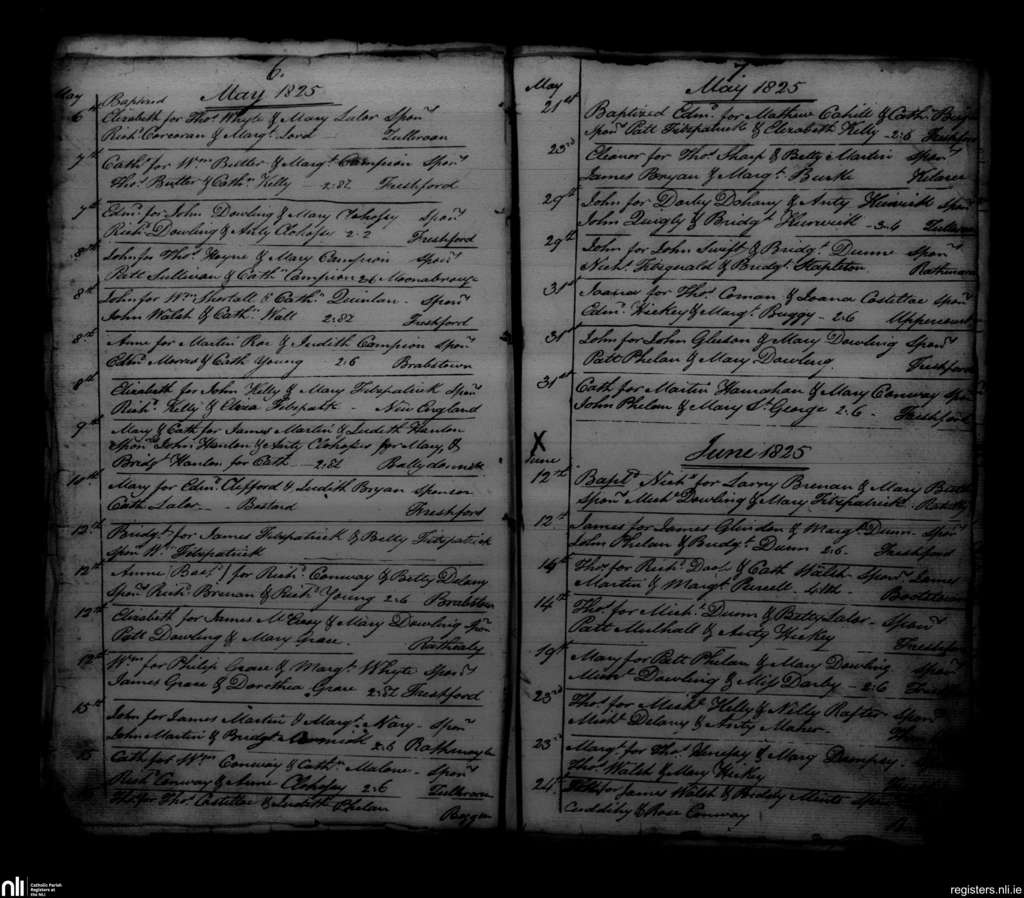 6.
May
May 1825
Baptized
6th Elizabeth for Thos. Whyte & Mary Lalor Sponrs
Richd. Corcoran & Margt. Tullroan
7th Cathn. for Wm. Butler & Margt. Campion Sponrs
Thos. Butler & Cathn. Kelly - 2:8½ Freshford
7th Edmd. for John Dowling & Mary Clohosey Sponrs
Richd. Dowling & Ally Clohosy 2-2 Freshford
8th John for Thos. Hayne & Mary Campion Sponrs
Patt Sullivan & Cathn. Campion 2:6 Moonabrouge
8th John for Wm. Shortall & Cathn. Quinlan - Sponrs
John Walsh & Cathn. Wall 2:8½ Freshford
8th Anne for Martin Roe & Judith Campion Sponrs
Edmd. Morres & Cath Young 2:6 Brabstown
8th Elizabeth for John Kelly & Mary Fitzpatrick Sponrs
Richd. Kelly & Eliza Fitzpatk - New England
9th Mary & Cath for James Martin & Judith Hanlon
Sponrs John Hanlon & Anty Clohosey for Mary, &
Bridgt Hanlon for Cath - 2:8½
10th Mary for Edmd. Clifford & Judith Bryan Sponsor
Cath Lalor - Bastard Freshford
12th Bridgt. for James Fitzpatrick & Betty Fitzpatrick
Sponr Wm. Fitzpatrick
12th Anne for Richd. Conway & Betty Delany
Sponrs Richd. Brenan & Richd. Young 2:6 Brabstown
12th Elizabeth for James McEvoy & Mary Dowling Spon
Patt Dowling & Mary Grace. Rathealy
12th Wm. for Philip Grace & Margt. Whyte Sponrs
James Grace & Dorothea Grace 2:8½ Freshford
15th John for James Martin & Margt. Nary - Sponrs
John Martin & Bridgt 2:6
15 Cath for Wm. Conway & Cathn. Malone - Sponrs
Richd. Conway & Anne Clohosey 2:6 Tullroan
Thos. for Thos. Costelloe & Judith Phelan
7
May
May 1825
21st Baptized Edmd. for Mathew Cahill & Cath.
Sponrs Patt Fitzpatrick & Elizabeth Kelly - 2:6 Freshford
23rd Eleanor for Thos. Sharp & Betty Martin Sponrs
James Bryan & Margt. Burke
29th John for Darby Dohany & Anty Sponrs
John Quigly & Bridgt - 3-4 Tullroan
29th John for John Swift & Bridgt. Dunn Sponrs
Nichs. Fitzgerald & Bridgt. Stapleton. Rathmore
31st Joana for Thos. Coman & Joana Costelloe Sponrs
Edmd. Hickey & Margt. Buggy - 2:6 Uppercourt
31st John for John Gleeson & Mary Dowling Sponrs
Patt Phelan & Mary Dowling. Freshford
31st Cath for Martin Hanrahan & Mary Conway Spon
John Phelan & Mary St. George 2:6 - Freshford
X
June
June 1825
12th Bapt. Nichs for Larry Brenan & Mary
Sponrs Michl Dowling & Mary Fitzpatrick
12th James for James Glindon & Margt. Dunn - Spon
John Phelan & Bridgt Dunn 2:6. Freshford
14th Thos. for Richd. & Cath Walsh - Sponrs. James
Martin & Margt. Purcell
14th Thos. for Michl. Dunn & Betty Lalor - Sponrs
Patt Mulhall & Anty Hickey Freshford
19th Mary for Patt Phelan & Mary Dowling Sponrs
Michl Dowling & Miss Darby - 2:6
23rd Thos. for Michl Kelly & Nelly Rafter Sponrs
Michl Delany & Anty Maher.
23rd Margt. for Thos. & Mary Dempsey.
Thos. Walsh & Mary Hickey
24th for James Walsh & Biddy
Cuddihy & Rose Conway
nli
Catholic Parish
Registers at
the NLI
registers.nli.ie